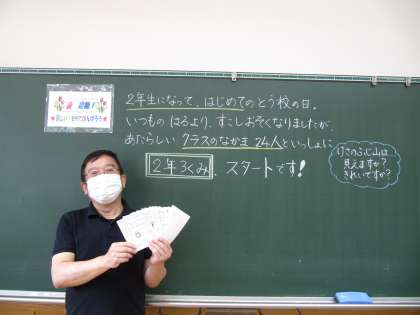 2年生になって、はじめてのとう校の日。
いつものはるより、すこしおそくなりましたが、
あたらしいクラスのなかま24人といっしょに
2年3くみ、スタートです!
けさのふじ山は
見えますか?
きれいですか?